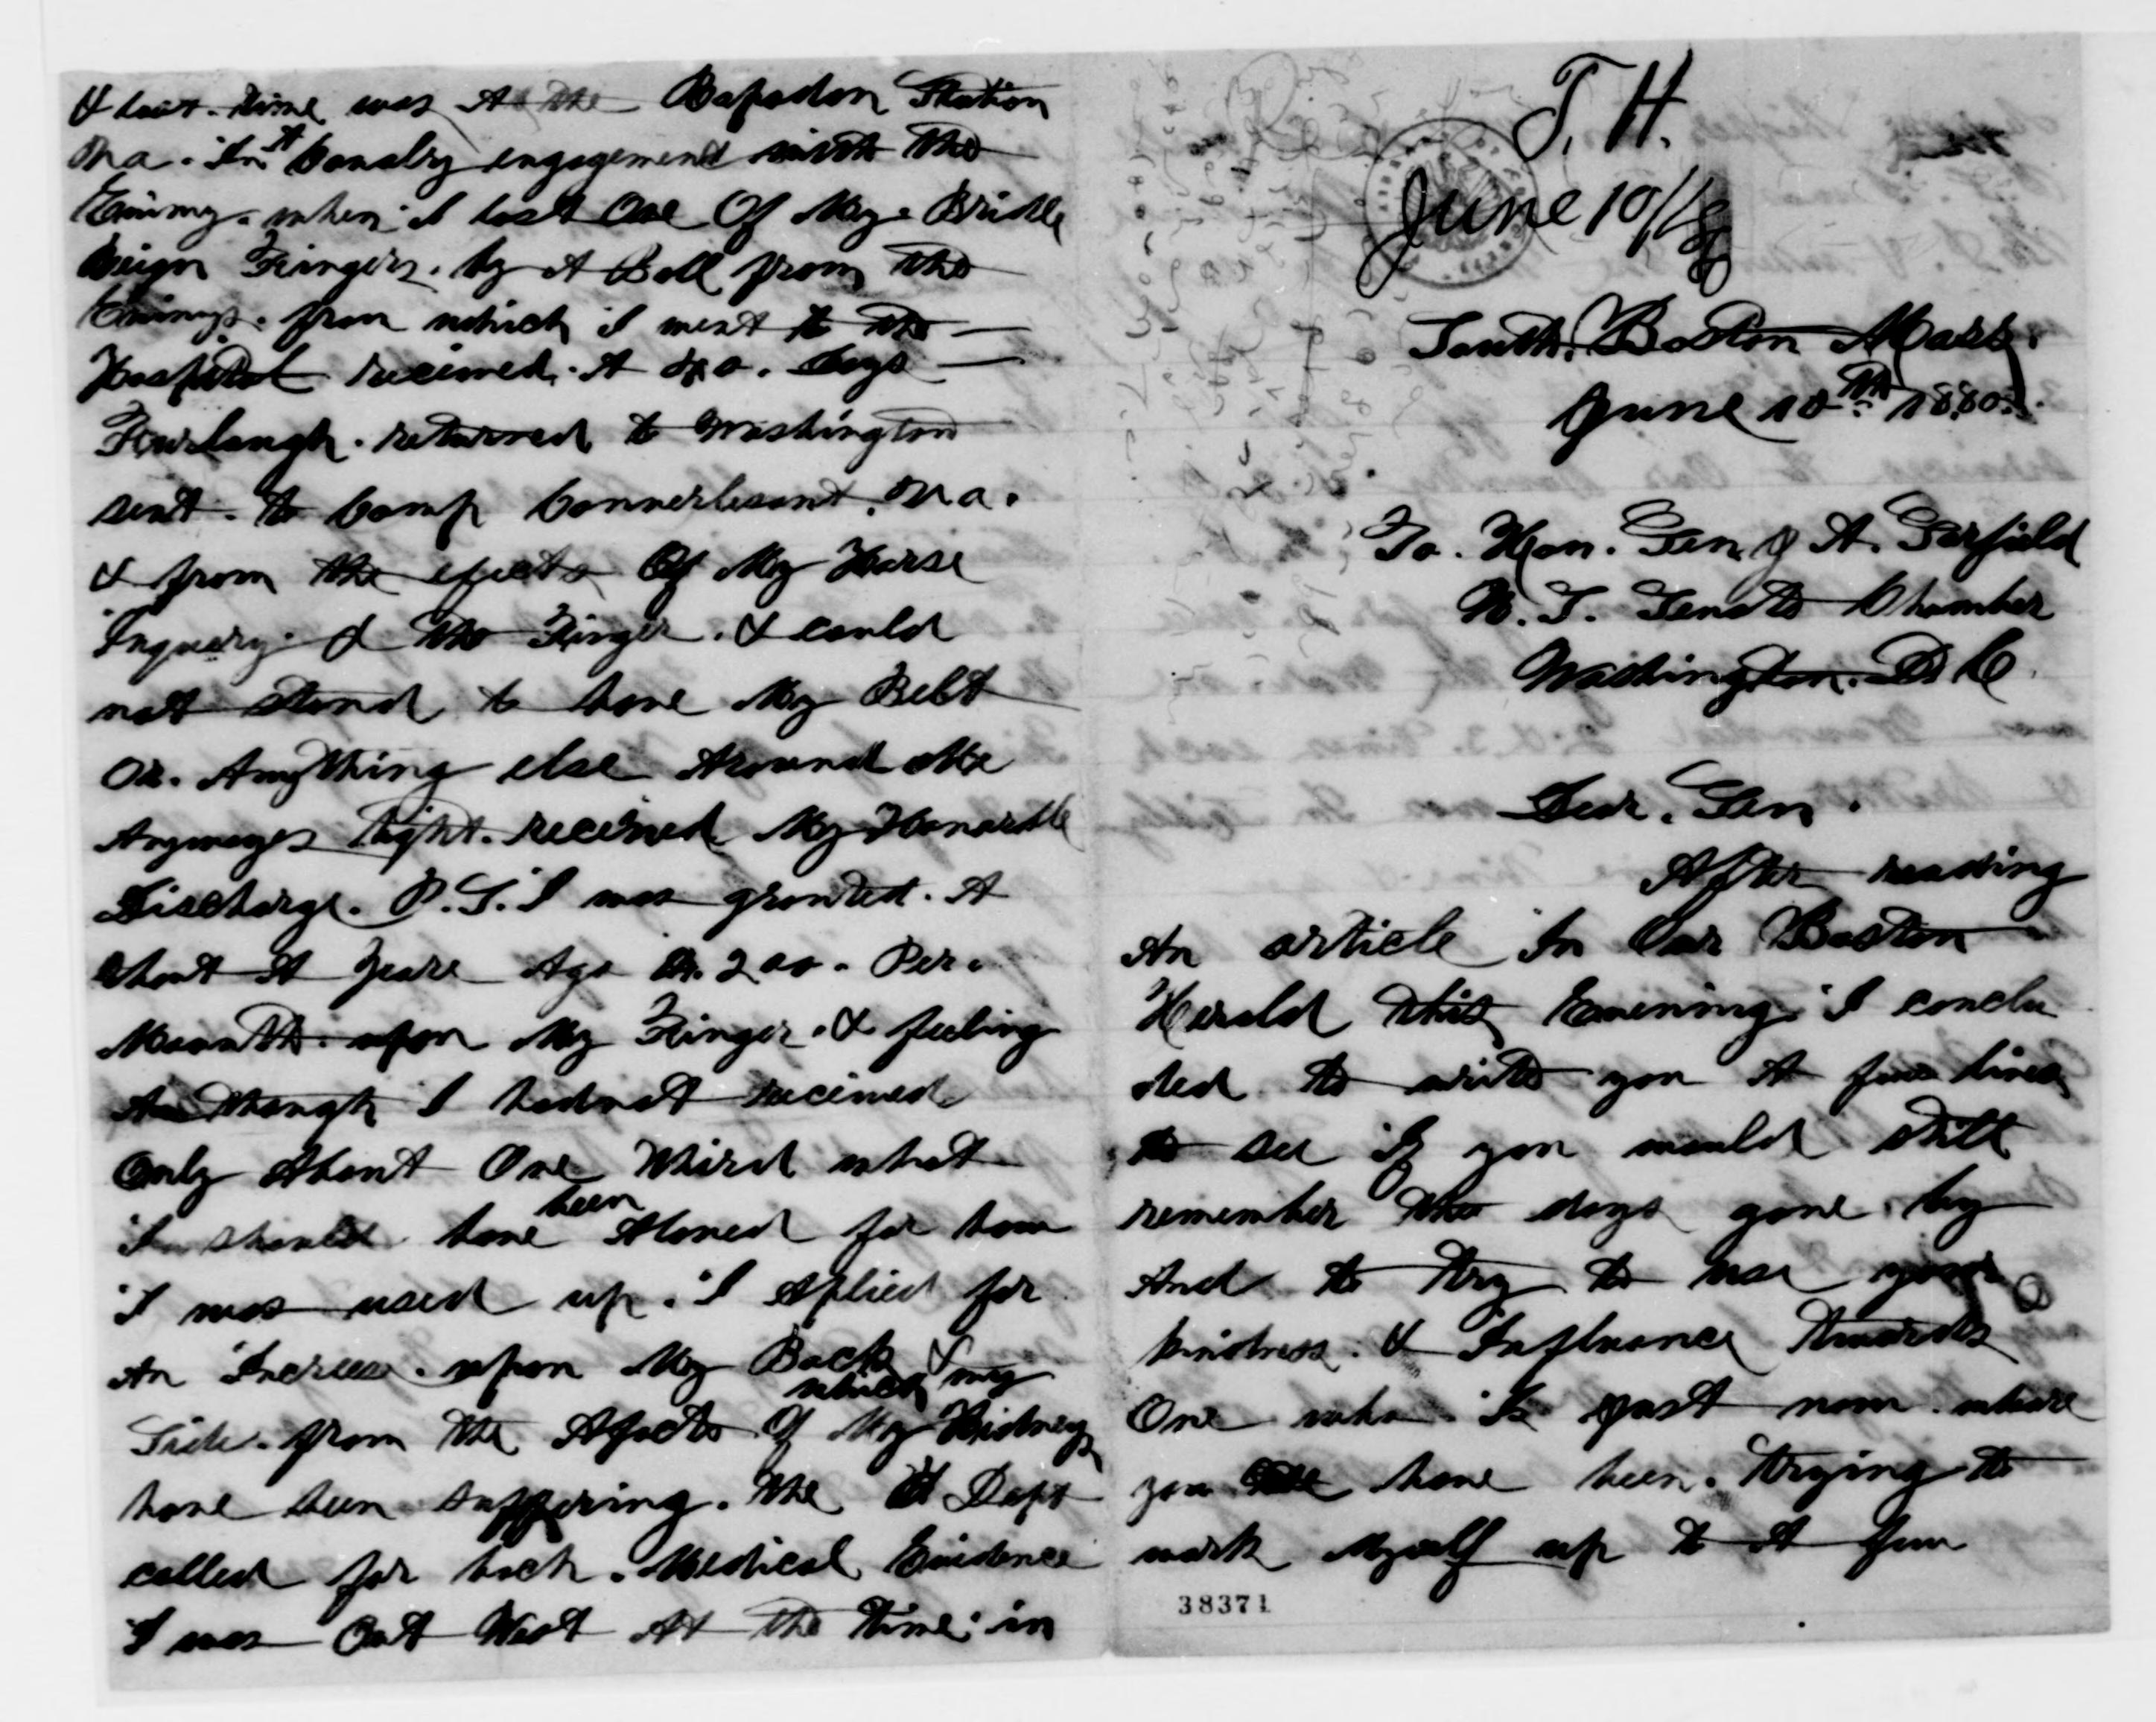 T. H.
June 10/80
South. Boston Mass.
June 10th 1880.
To. Hon. Gen. J A. Garfield
U. S. Senate Chamber
Washington. D. C.
Dear. Gen.
After reading
An article In Our Boston
Herald this Evening. I conclu
ded. to write you A few lines
to see If you would still
remember the days gone. by
And to try to use your
kindness. & Influance Towards
One who. Is past now. whare
you have been. trying to
work Myself up to A few
38371
& last. time was At the Station
Va. In A Cavalry engagement with the
Enimy. when I lost One Of My. Bridle
Reign Fingers. by A Ball from the
Enimys. from which I went to the
Hospital received. A 40. days
Furlough. returned to Washington
sent. to Camp Converlesant. Va.
& from the efects Of My Horse
Inquery. & the Finger. & could
not stand to have My Belt
Or. Anything else Around Me
Anyways tight. received My Honarble
Discharge. P.S. I was granted. A
bout A Yeare Ago 2.00. Per.
Mounth. upon My Finger. & feeling
As though I hadnot received
Only About One third what
I should have been Alowed for how
I was used up. I Aplied for
An Increes. upon My Back & my
Side. from the Afects Of which My Kidneys
have been suffering. the Dept
called for back. Medical Evidence
I was Out West At the time. in